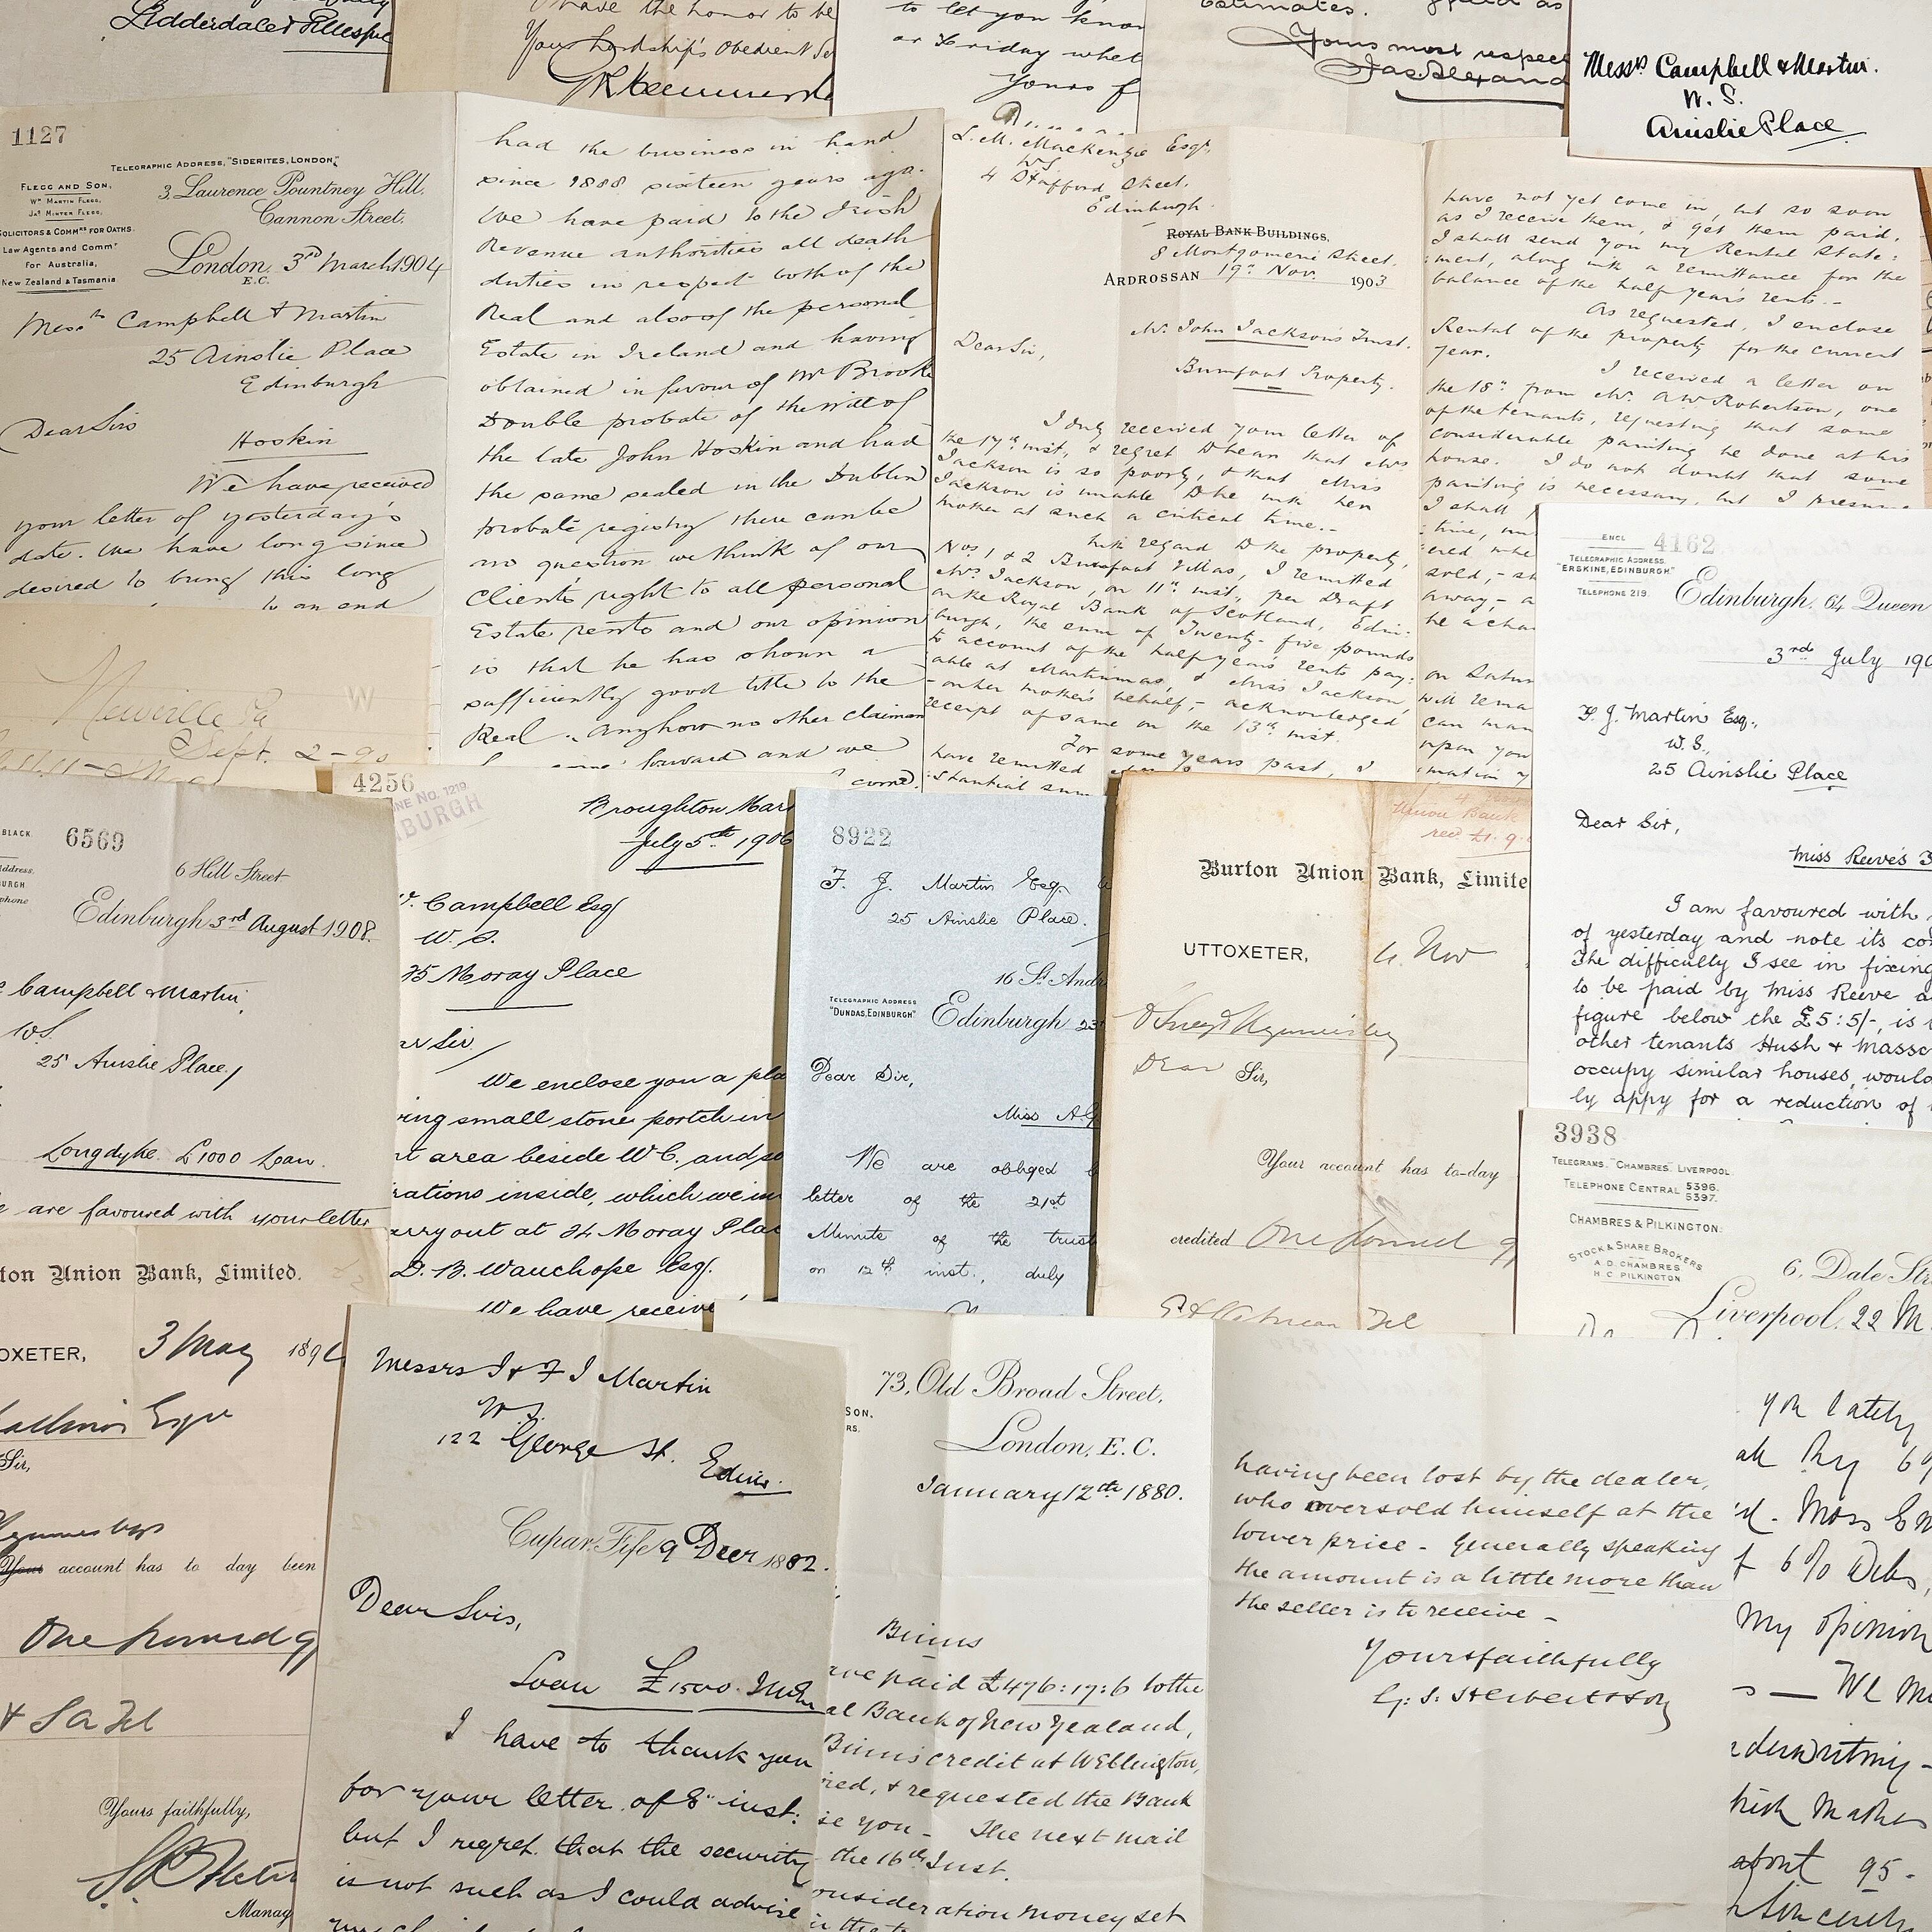 Yours most respec
Messrs Campbell & Martin.
W. S.
Ainslie Place
have the honor to be
Your Lordship's Obedient Se
to let you know
or Friday what
Yours f
1127
TELEGRAPHIC ADDRESS, "SIDERITES, LONDON."
FLEGG AND SON,
WM MARTIN FLEGG,
JAS MINTER FLEGG,
SOLICITORS & COMMRS FOR OATHS.
Law Agents and Commrs
for Australia,
New Zealand & Tasmania
3, Laurence Pountney Hill,
Cannon Street,
London, 3rd March 1904
E.C.
Messrs Campbell & Martin
25 Ainslie Place
Edinburgh
Dear Sirs
Hoskin
We have received
your letter of yesterday's
date. We have long since
desired to bring this long
to an end
had the business in hand
since 1888 sixteen years ago.
We have paid to the Irish
Revenue authorities all death
duties in respect both of the
Real and also of the personal
Estate in Ireland and having
obtained in favour of Mr Brooke
Double probate of the Will of
the late John Hoskin and had
the same sealed in the Dublin
probate registry there can be
no question we think of our
Clients right to all personal
Estate rents and our opinion
is that he has shown a
sufficiently good title to the
Real. Anyhow no other claiman
forward and we
L. M. Mackenzie Esqr.,
W.S.
4 Stafford Street,
Edinburgh.
ROYAL BANK BUILDINGS,
8 Montgomerie Street.
ARDROSSAN 19th Nov. 1903
Mr. John Jackson's Trust.
Dear Sir,
Burnfoot Property.
I duly received your letter of
the 17th inst., & regret to hear that Mrs
Jackson is so poorly, & that Miss
Jackson is unable to be with her
mother at such a critical time.-
With regard to the property,
Nos 1 & 2 Burnfoot Villas, I remitted
Mrs. Jackson, on 11th inst., per Draft
on the Royal Bank of Scotland, Edin-
burgh, the sum of Twenty-five pounds
to account of the half year's rents pay:
able at Martinmas, & Miss Jackson,
-on her mother's behalf,- acknowledged
receipt of same on the 13th inst.
For some years past, I
have remitted
:stantial sum
have not yet come in, but so soon
as I receive them, & get them paid,
I shall send you my Rental State:
:ment, along with a remittance for the
balance of the half year's rents.-
As requested, I enclose
Rental of the property for the current
year.
I received a letter on
the 18th from Mr. A. W. Robertson, one
of the tenants, requesting that some
considerable painting be done at his
house. I do not doubt that some
painting is necessary, but I presume
I shall
ENCL 4162
TELEGRAPHIC ADDRESS,
"ERSKINE, EDINBURGH."
TELEPHONE 219.
Edinburgh, 64 Queen
3rd July 190
F. J. Martin Esq.,
W. S.,
25 Ainslie Place
Dear Sir,
Miss Reeve's
I am favoured with
of yesterday and note its co
The difficulty I see in fixing
to be paid by Miss Reeve a
figure below the £5:5/-, is
other tenants Hush & Masso
occupy similar houses, would
ly appy for a reduction of
Newville Pa
Sept. 2-90
BLACK.
6569
6 Hill Street
Edinburgh 3rd August 1908.
Campbell & Martin,
W.S.
25 Ainslie Place,
Longdyke. £1000 Loan.
are favoured with your letter
4256
NE No. 1219
BURGH
Broughton Mar
July 5th 1906
Campbell Esq
W. S.
25 Moray Place
Sir
We enclose you a pla
ing small stone portch in
area beside W C. and so
rations inside, which we in
arry out at 24 Moray Plac
D. B. Wauchope Esq.
We have receive
8922
F. J. Martin Esq. W
25 Ainslie Place.
16 St. Andr
TELEGRAPHIC ADDRESS
"DUNDAS, EDINBURGH"
Edinburgh 23
Dear Sir,
Miss A. G
We are obliged
letter of the 21st
Minute of the trust
on 12th inst., duly
Union Bank
Burton Union Bank, Limite
UTTOXETER, 4 Nov
Dear Sir,
Your account has to-day
credited One pound
3938
TELEGRAMS. "CHAMBRES" LIVERPOOL.
TELEPHONE CENTRAL 5396.
5397.
CHAMBRES & PILKINGTON.
STOCK & SHARE BROKERS
A. D. CHAMBRES
H. C. PILKINGTON
6, Dale Str
Liverpool, 22 M
ton Union Bank, Limited.
OXETER, 3 May 189
Esqre
Sir,
Your account has to day been
One pound
Yours faithfully,
Manag
Messrs J & F J Martin
W.S.
122 George St. Edinr.
Cupar, Fife 9 Decr 1882.
Dear Sirs,
Loan £1500.
I have to thank you
for your letter of 8th inst:
but I regret that the security
is not such as I could advise
SON,
RS.
73, Old Broad Street,
London, E.C.
January 12th 1880.
Binns
ve paid £476:17:6 to the
al Bank of New Zealand,
Binns credit at Wellington,
ired, & requested the Bank
se you - The next mail
the 16th Inst.
onsideration money set
having been lost by the dealer,
who oversold himself at the
lower price - Generally speaking
the amount is a little more than
the seller is to receive -
Yours faithfully
G. S. Herbert & Son
you lately
6%
Moss E
6% Debs,
My opinion
— We
derwriting -
about 95 -